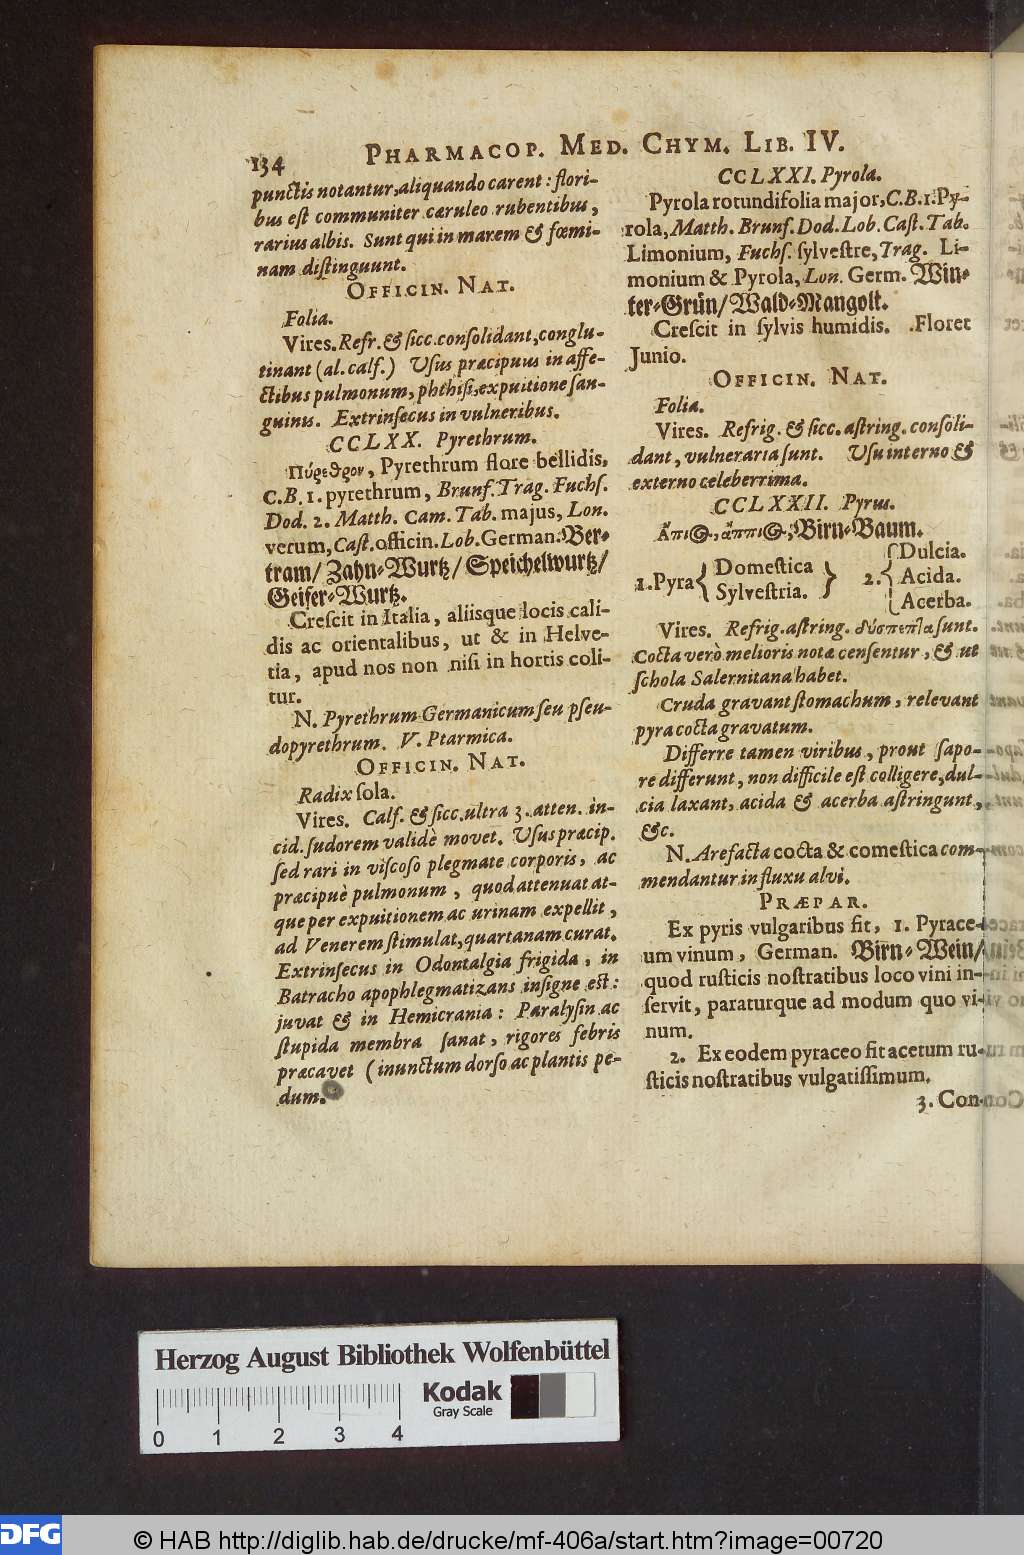 134
PHARMACOP. MED. CHYM. LIB. IV.
punctis notantur, aliquando carent: flori-
bus est communiter cæruleo rubentibus,
rarius albis. Sunt qui in marem & fœmi-
nam distinguunt.
OFFICIN. NAT.
Folia.
Vires. Refr. & sicc. consolidant, conglu-
tinant (al. calf.) Usus præcipuus in affe-
ctibus pulmonum, phthisi, expuitione san-
guinis. Extrinsecus in vulneribus.
CCLXX. Pyrethrum.
Πύρεθρον, Pyrethrum flore bellidis,
C.B. 1. pyrethrum, Brunf. Trag. Fuchs.
Dod. 2. Matth. Cam. Tab. majus, Lon.
verum, Cast. officin. Lob. German. Ber-
tram/ Zahn-Wurtz/ Speichelwurtz/
Geifer-Wurtz.
Crescit in Italia, aliisque locis cali-
dis ac orientalibus, ut & in Helve-
tia, apud nos non nisi in hortis coli-
tur.
N. Pyrethrum Germanicum seu pseu-
dopyrethrum. V. Ptarmica.
OFFICIN. NAT.
Radix sola.
Vires. Calf. & sicc. ultra 3. atten. in-
cid. sudorem validè movet. Usus præcip.
sed rari in viscoso plegmate corporis, ac
præcipuè pulmonum, quod attenuat at-
que per expuitionem ac urinam expellit,
ad Venerem stimulat, quartanam curat.
Extrinsecus in Odontalgia frigida, in
Batracho apophlegmatizans insigne est:
juvat & in Hemicrania: Paralysin ac
stupida membra sanat, rigores febris
præcavet (inunctum dorso ac plantis pe-
dum.
CCLXXI. Pyrola.
Pyrola rotundifolia major, C.B. 1. Py-
rola, Matth. Brunf. Dod. Lob. Cast. Tab.
Limonium, Fuchs. sylvestre, Trag. Li-
monium & Pyrola, Lon. Germ. Win-
ter-Grün/ Wald-Mangolt.
Crescit in sylvis humidis. Floret
Junio.
OFFICIN. NAT.
Folia.
Vires. Refrig. & sicc. astring. consoli-
dant, vulneraria sunt. Usu interno &
externo celeberrima.
CCLXXII. Pyrus.
Ἄπι@, ἄππι@, Birn-Baum.
1. Pyra { Domestica Sylvestria. } 2. { Dulcia.
Acida.
Acerba.
Vires. Refrig. astring. δύσπεπτα sunt.
Cocta verò melioris notæ censentur, & ut
schola Salernitana habet.
Cruda gravant stomachum, relevant
pyra cocta gravatum.
Differre tamen viribus, prout sapo-
re differunt, non difficile est colligere, dul-
cia laxant, acida & acerba astringunt,
&c.
N. Arefacta cocta & comestica com-
mendantur in fluxu alvi.
PRÆPAR.
Ex pyris vulgaribus fit, 1. Pyrace-
um vinum, German. Birn-Wein/
quod rusticis nostratibus loco vini in-
servit, paraturque ad modum quo vi-
num.
2. Ex eodem pyraceo fit acetum ru-
sticis nostratibus vulgatissimum.
3. Con-
Herzog August Bibliothek Wolfenbüttel
Kodak
Gray Scale
0 1 2 3 4
DFG
© HAB http://diglib.hab.de/drucke/mf-406a/start.htm?image=00720